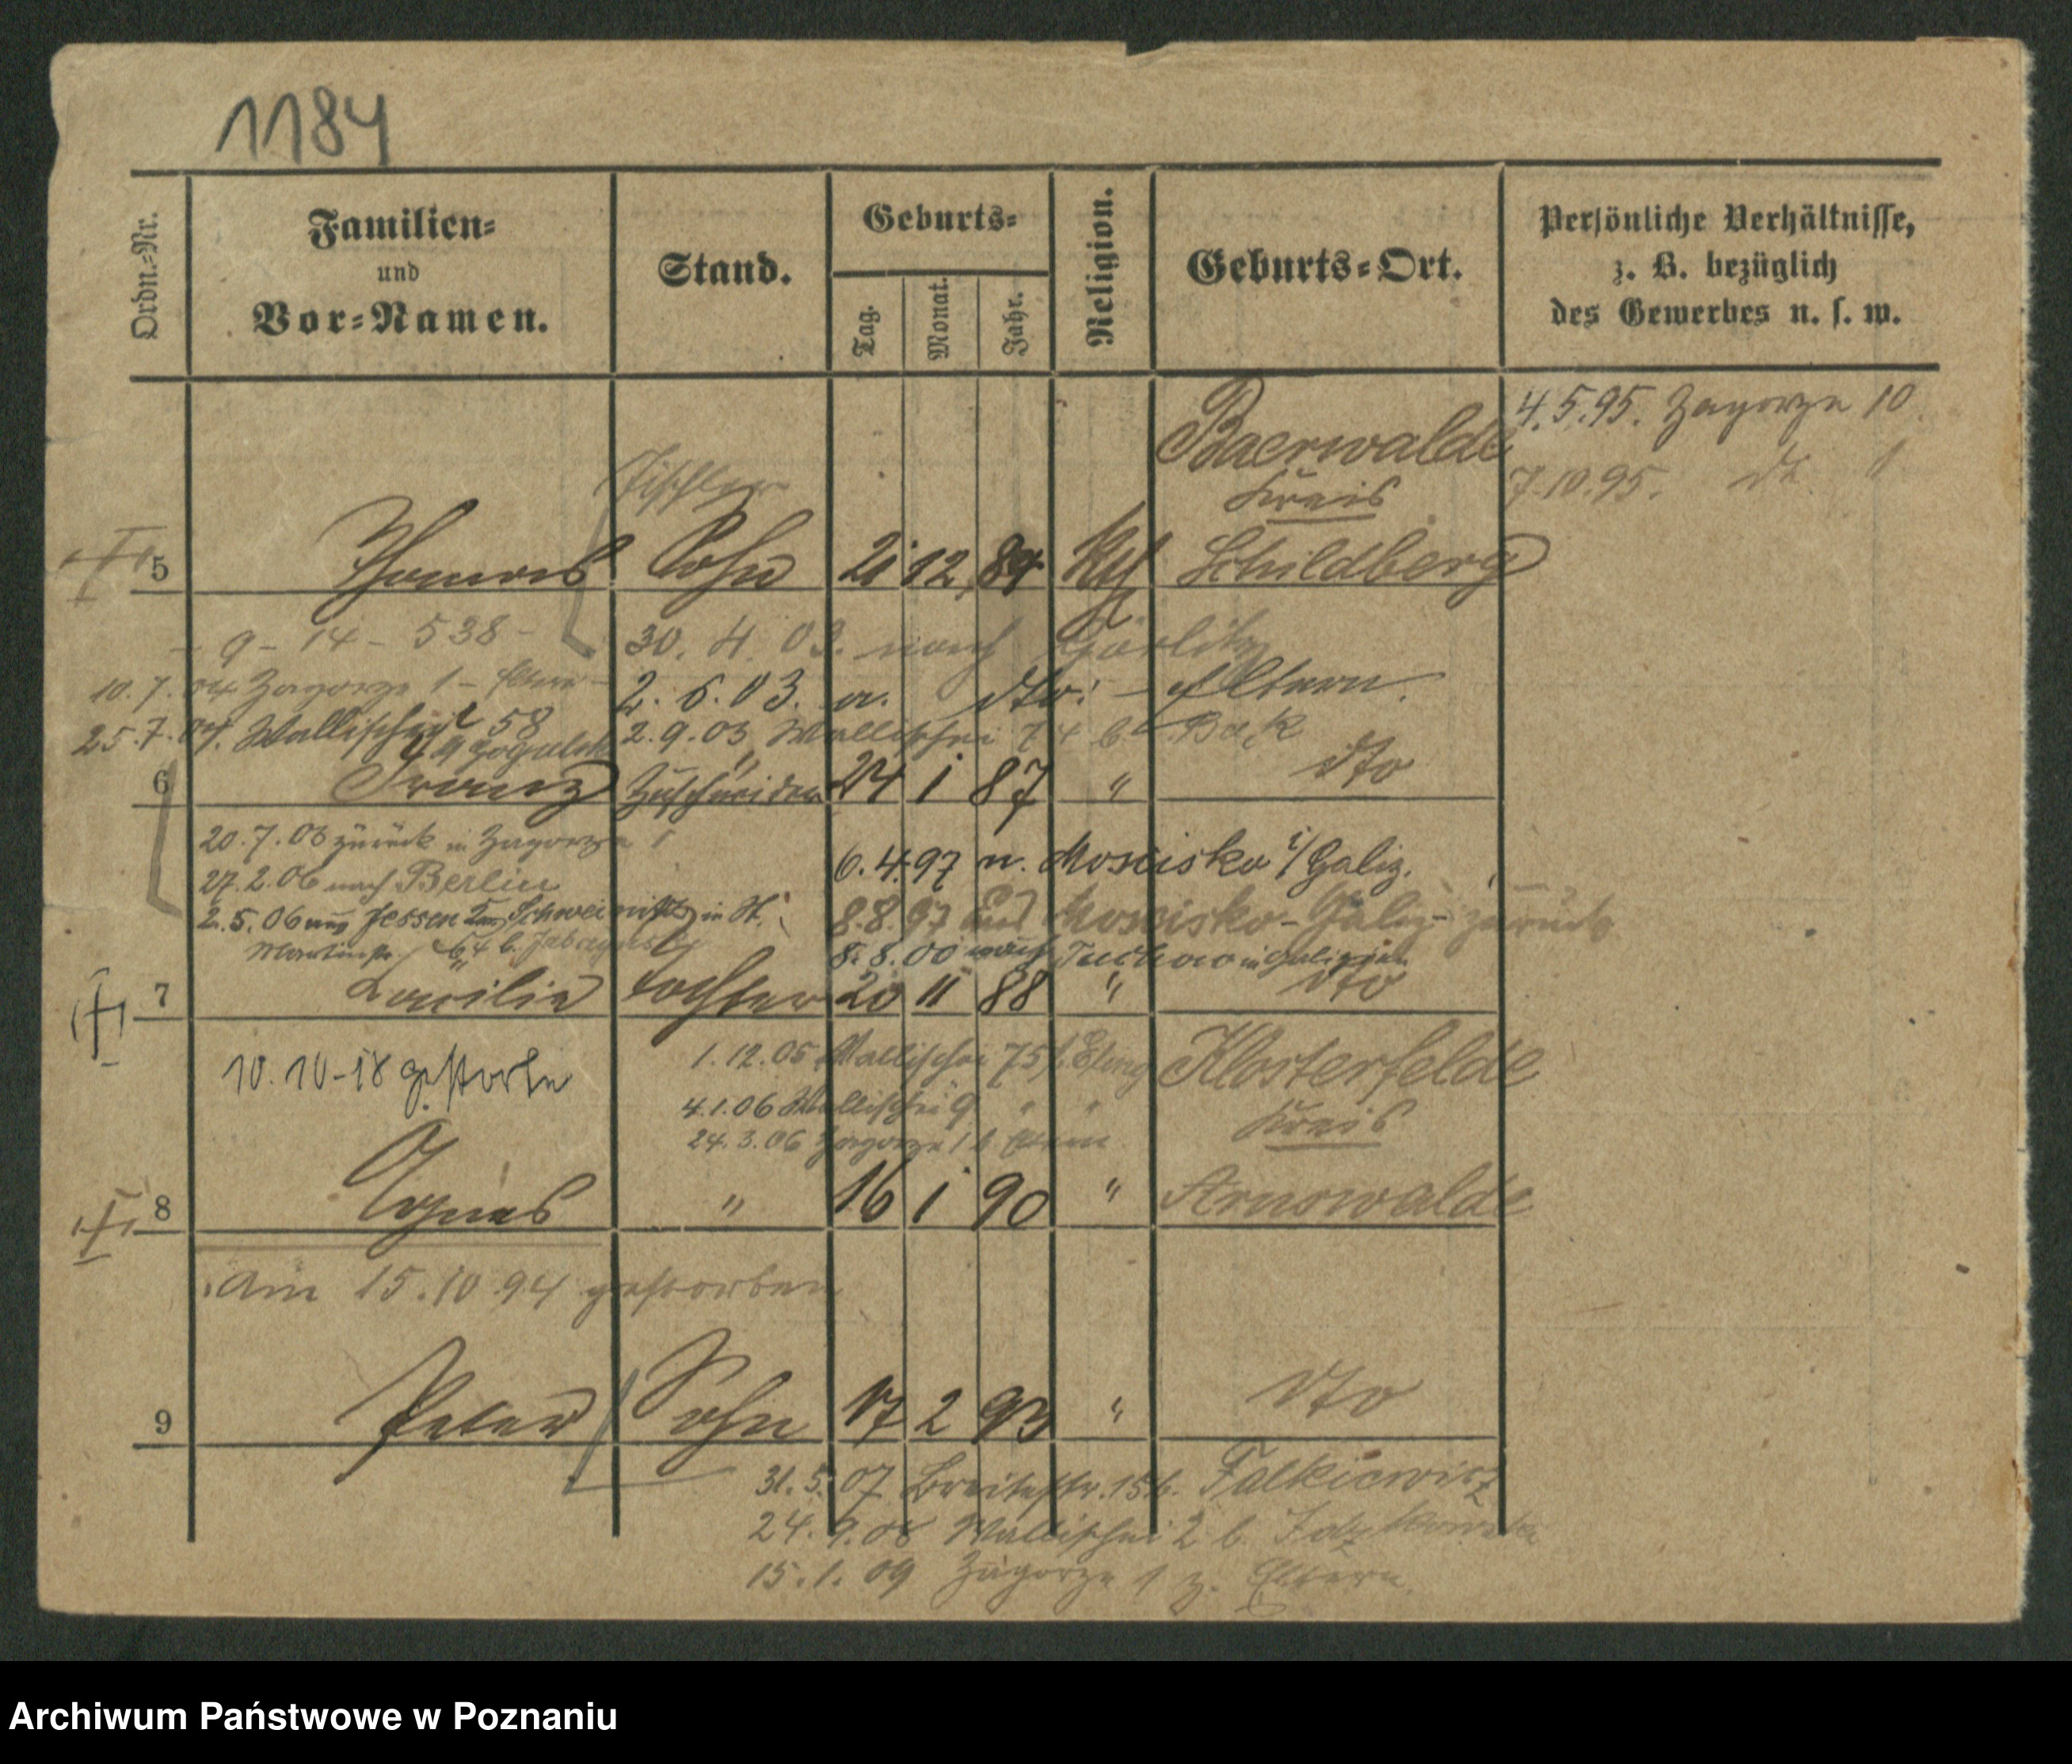 1184
Ordn.=Nr.
Familien=
und
Vor=Namen.
Stand.
Geburts=
Tag.
Monat.
Jahr.
Religion.
Geburts=Ort.
Persönliche Verhältnisse,
z. B. bezüglich
des Gewerbes u. s. w.
4.5.95. Zagorze 10
7.10.95. do 1
Baerwalde
Kreis
Tischler
5 Thomas Sohn 21 12 84 kth Schildberg
- 9 - 14 - 538 - 30. 4. 03. nach Görlitz
10. 7. 04 Zagorze 1 - Eltern - 2. 6. 03. a. dto: - Eltern.
25. 7. 04. Wallischei 58 2. 9. 03 Wallischei 74 b Bak
dto
6 Franz Zuschneider 24 1 87 "
20. 7. 03 zurück in Zagorze 1
6. 4. 97 n. Mosciska i/Galiz.
27. 2. 06 nach Berlin
2. 5. 06 aus Jessen Schweinitz in St. 8. 8. 97 aus Mosciska - Galiz - zurück
Martinstr. 64 b. 8. 8. 00 nach Tuchow in Galizien
7 Caecilie Tochter 20 11 88 " dto
10. 10 - 18 gestorben
1. 12. 05 Wallischei 75 Klosterfelde
4. 1. 06 Wallischei 9 " "
24. 3. 06 Zagorze 1 Eltern Kreis
8 Agnes " 16 1 90 " Arnswalde
Am 15. 10 94 gestorben
9 Peter Sohn 17 2 93 " dto
31. 5. 07 Breitestr. 15 b. Falkiewicz
24. 9. 08 Wallischei 2 b.
15. 1. 09 Zagorze 1 z. Eltern.
Archiwum Państwowe w Poznaniu